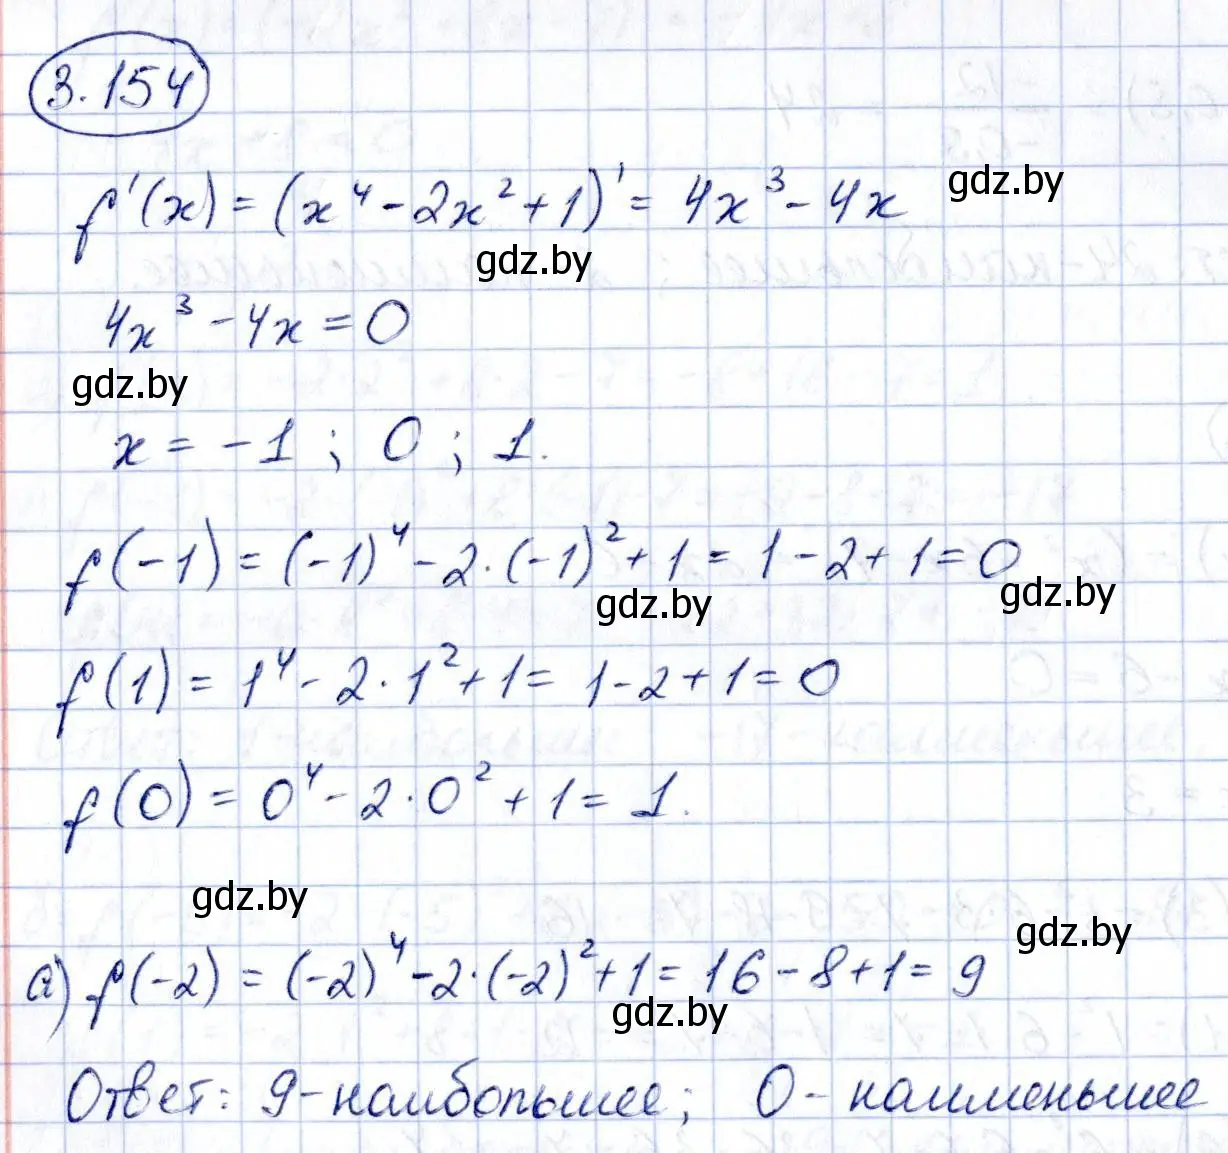 3.154
f'(x) = (x⁴ - 2x² + 1)' = 4x³ - 4x
gdz.by
gdz.by
4x³ - 4x = 0
gdz.by
x = -1 ; 0 ; 1.
f(-1) = (-1)⁴ - 2·(-1)² + 1 = 1 - 2 + 1 = 0
gdz.by
gdz.by
f(1) = 1⁴ - 2·1² + 1 = 1 - 2 + 1 = 0
f(0) = 0⁴ - 2·0² + 1 = 1.
gdz.by
gdz.by
а) f(-2) = (-2)⁴ - 2·(-2)² + 1 = 16 - 8 + 1 = 9
gdz.by
Ответ: 9 - наибольшее; 0 - наименьшее